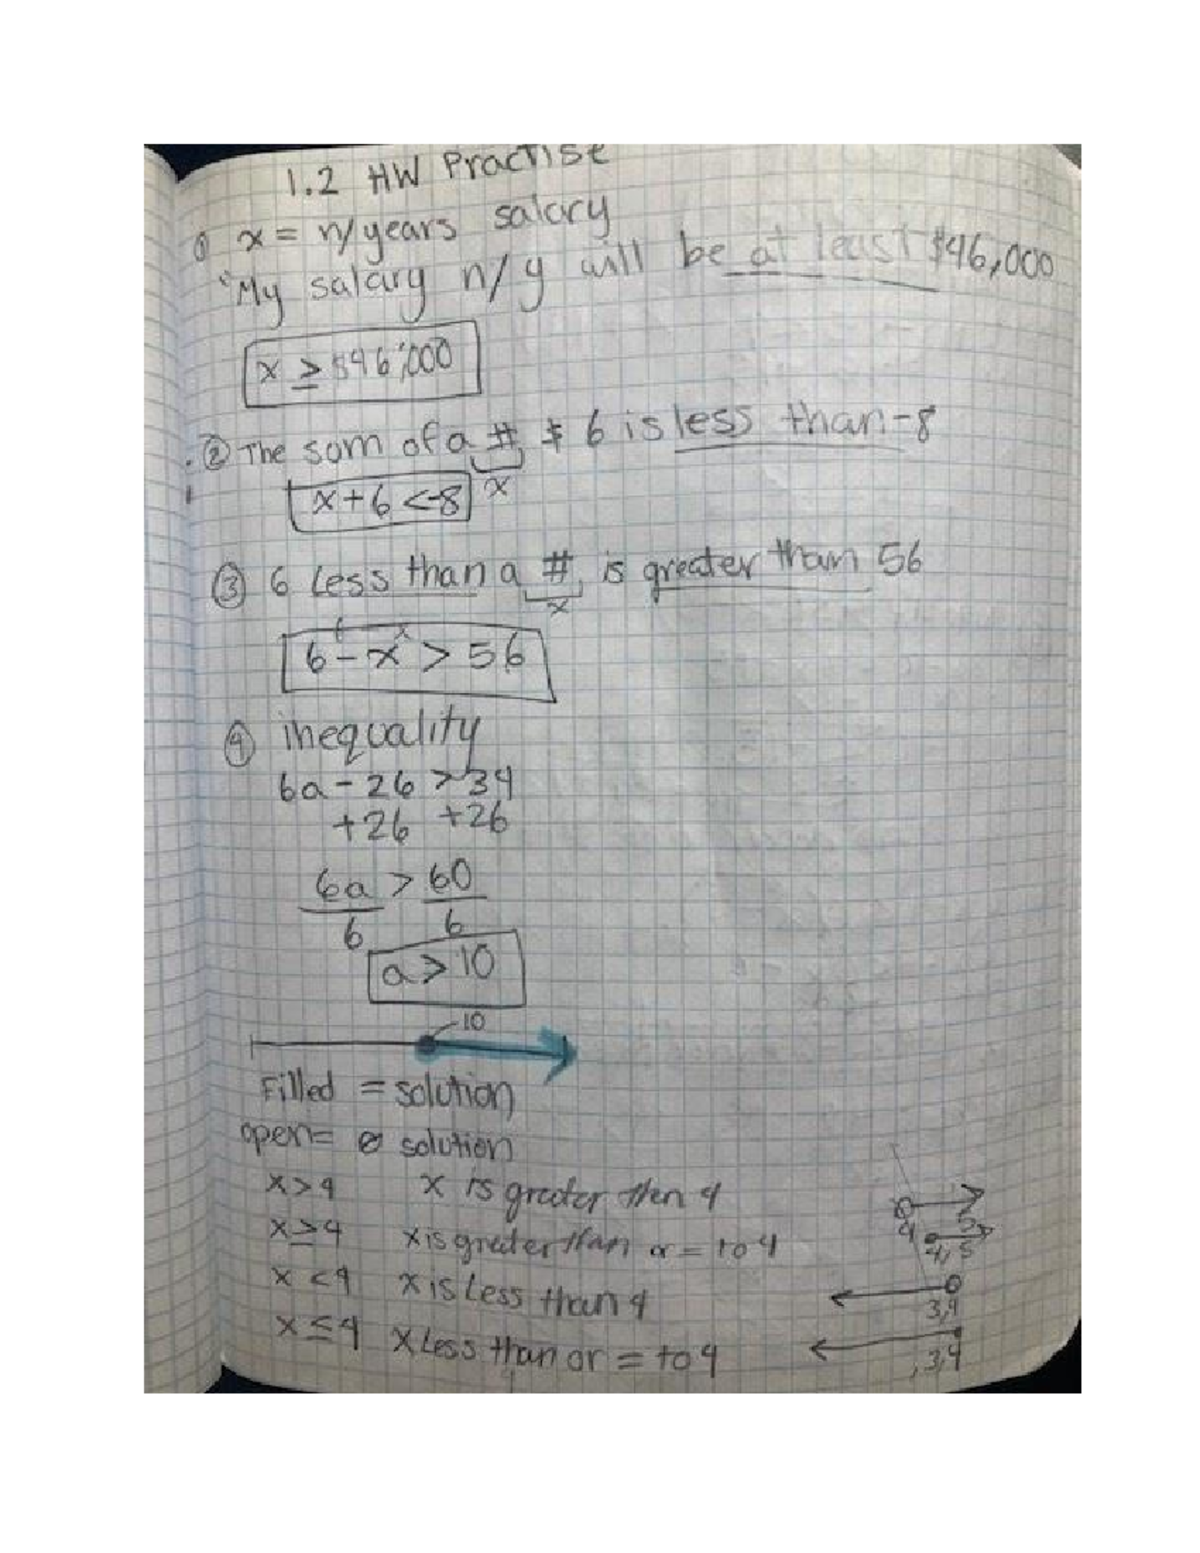 1.2 HW Practise
① x = n/years salary
"My salary n/y will be at least $46,000
x ≥ $46,000
② The sum of a # & 6 is less than -8
x
x + 6 < -8
③ 6 Less than a # is greater than 56
x
6 - x > 56
④ inequality
6a - 26 > 34
+26 +26
6a > 60
6 6
a > 10
10
Filled = solution
open = ∅ solution
x > 4 x is greater then 4
x ≥ 4 x is greater than or = to 4
x < 4 x is Less than 4
x ≤ 4 x Less than or = to 4
4 5
4, 5
3,4
,3,4